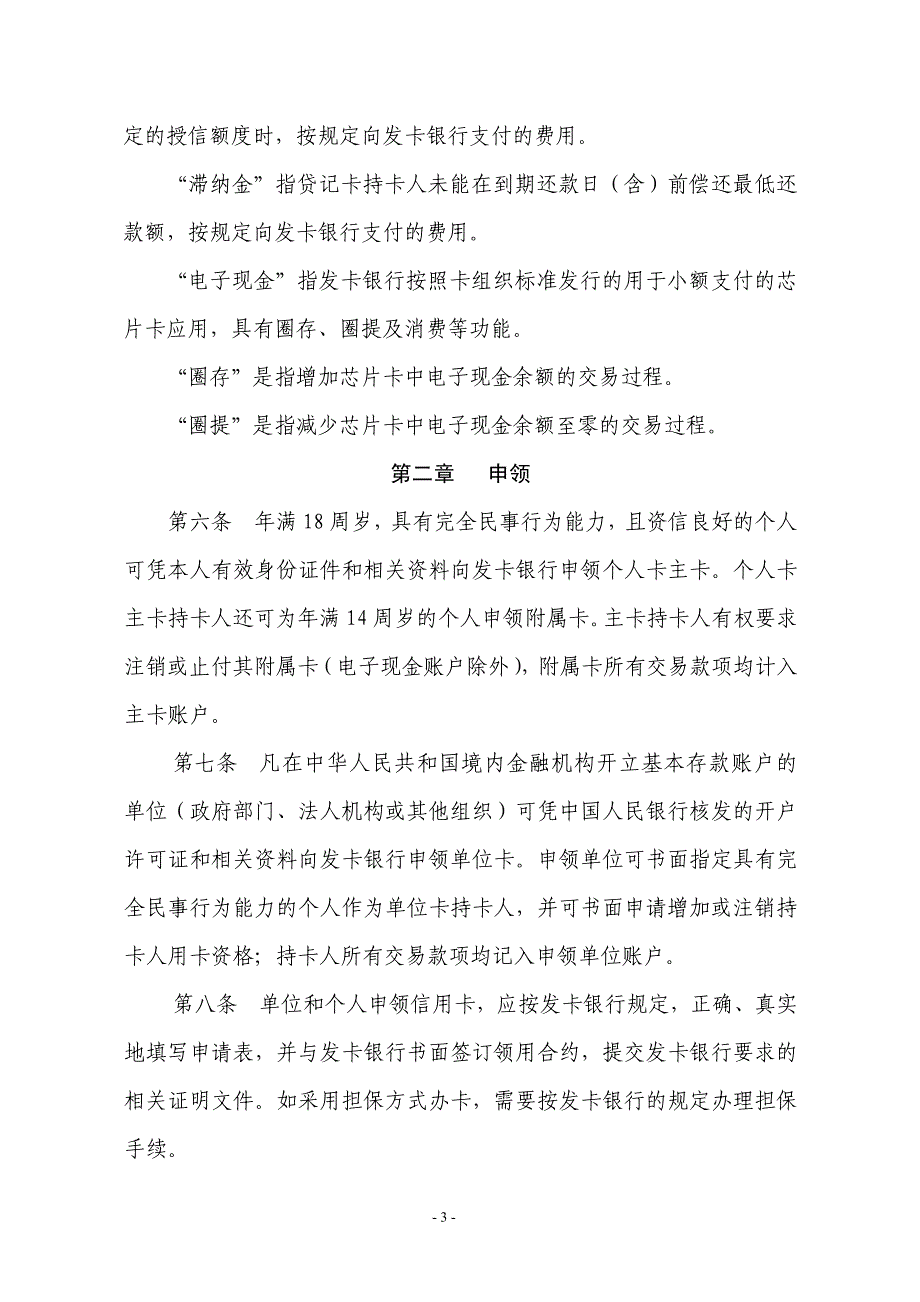 定的授信额度时，按规定向发卡银行支付的费用。
“滞纳金”指贷记卡持卡人未能在到期还款日（含）前偿还最低还
款额，按规定向发卡银行支付的费用。
“电子现金”指发卡银行按照卡组织标准发行的用于小额支付的芯
片卡应用，具有圈存、圈提及消费等功能。
“圈存”是指增加芯片卡中电子现金余额的交易过程。
“圈提”是指减少芯片卡中电子现金余额至零的交易过程。
第二章 申领
第六条 年满 18 周岁，具有完全民事行为能力，且资信良好的个人
可凭本人有效身份证件和相关资料向发卡银行申领个人卡主卡。个人卡
主卡持卡人还可为年满 14 周岁的个人申领附属卡。主卡持卡人有权要求
注销或止付其附属卡（电子现金账户除外），附属卡所有交易款项均计入
主卡账户。
第七条 凡在中华人民共和国境内金融机构开立基本存款账户的
单位（政府部门、法人机构或其他组织）可凭中国人民银行核发的开户
许可证和相关资料向发卡银行申领单位卡。申领单位可书面指定具有完
全民事行为能力的个人作为单位卡持卡人，并可书面申请增加或注销持
卡人用卡资格；持卡人所有交易款项均记入申领单位账户。
第八条 单位和个人申领信用卡，应按发卡银行规定，正确、真实
地填写申请表，并与发卡银行书面签订领用合约，提交发卡银行要求的
相关证明文件。如采用担保方式办卡，需要按发卡银行的规定办理担保
手续。
- 3 -